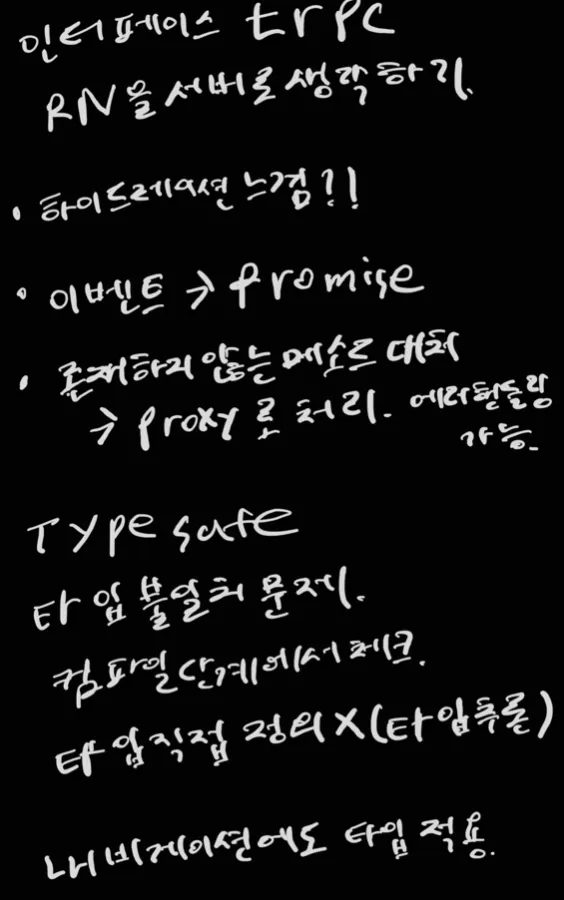 인터페이스 trpc
RN을 서버로 생각하기.
• 하이드레이션 느낌?!
• 이벤트 → Promise
• 존재하지 않는 메소드 대처
→ proxy로 처리. 에러핸들링
가능.
Type safe
타입 불일치 문제.
컴파일 단계에서 체크.
타입 직접 정의 X (타입추론)
내비게이션에도 타입 적용.